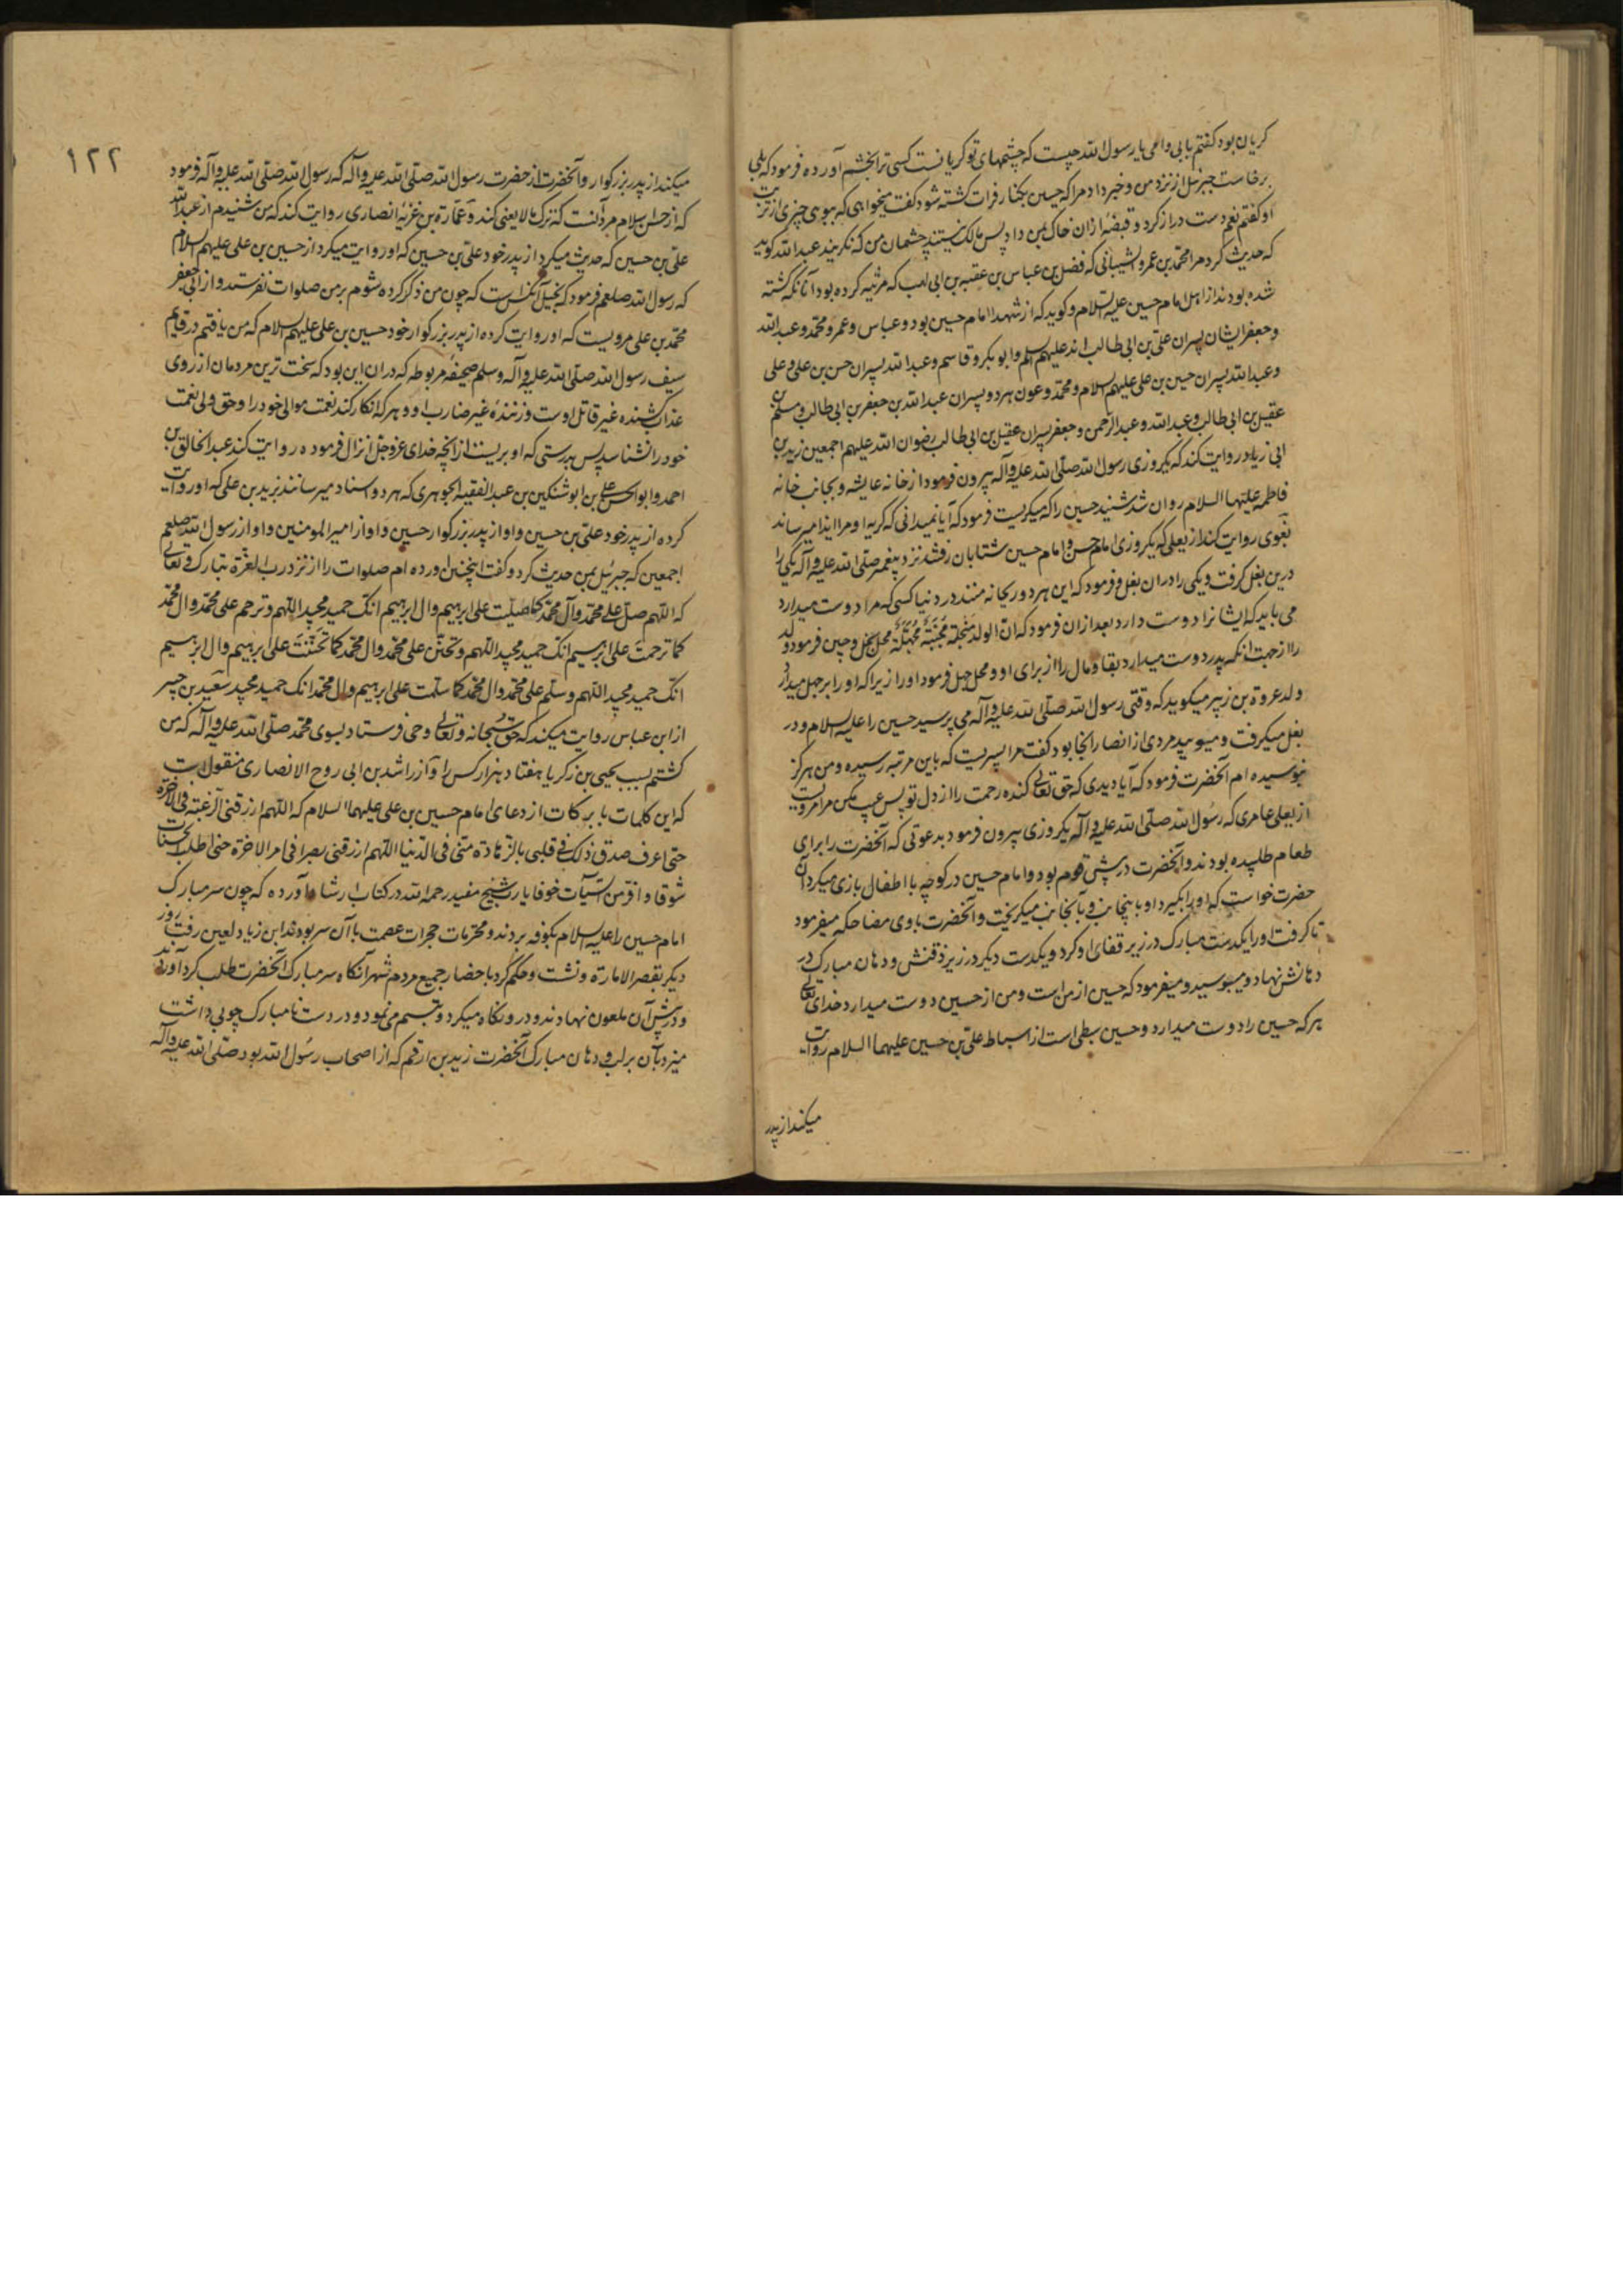 کریان بود کفتم بابی وامی یا رسول الله چیست که چشمهای تو کریانست کسی ترا بخشم آورده فرمود که بلی
برخاست جبرئیل از نزد من و خبر داد مرا که حسین بکنار فرات کشته شود کفت میخواهی که ببوی چیزی از تربت
او کفتم نعم دست دراز کرد و قبضهٔ ازان خاک بمن داد پس مالک نیستند چشمان من که نکریند عبدالله کوید
که حدیث کرد مرا محمد بن عمرو الشیبانی که فضل بن عباس بن عقبه بن ابی لهب که مرثیه کرده بود آنانکه کشته
شده بودند از اهل امام حسین علیه السلام و کوید که از شهدا امام حسین بود و عباس و عمر و محمد و عبدالله
و جعفر ایشان پسران علی بن ابی طالب اند علیهم السلام و ابوبکر و قاسم و عبدالله پسران حسن بن علی و علی
و عبدالله پسران حسین بن علی علیهم السلام و محمد و عون هر دو پسران عبدالله بن جعفر بن ابی طالب و مسلم بن
عقیل بن ابی طالب و عبدالله و عبدالرحمن و جعفر پسران عقیل بن ابی طالب رضوان الله علیهم اجمعین زید بن
ابی زیاد روایت کند که یکروزی رسول الله صلی الله علیه وآله بیرون فرمود از خانه عایشه و بجانب خانه
فاطمه علیها السلام روان شد شنید حسین را که میکریست فرمود که آیا نمیدانی که کریه او مرا ایذا میرساند
بغوی روایت کند از یعلی که یکروزی امام حسن و امام حسین شتابان رفتند نزد پیغمبر صلی الله علیه وآله یکی را
درین بغل کرفت و یکی را دران بغل و فرمود که این هر دو ریحانه منند در دنیا کسی که مرا دوست میدارد
می باید که ایشانرا دوست دارد بعد ازان فرمود که ان الولد مبخلة مجبنة مجهلة محل بخل و جبن فرمود ولد
را از جهت انکه پدر دوست میدارد بقا و مال را از برای او و محل جهل فرمود او را زیراکه او را بر جهل میدارد
ولد عروة بن زبیر میکوید که وقتی رسول الله صلی الله علیه وآله می پرسید حسین را علیه السلام و در
بغل میکرفت و میبوسید مردی از انصار آنجا بود کفت مرا پسریست که باین مرتبه رسیده و من هرکز
نبوسیده ام آنحضرت فرمود که آیا دیدی که حق تعالی کنده رحمت را از دل تو پس عیب مکن مرا مرویست
از یعلی عامری که رسول الله صلی الله علیه وآله یکروزی بیرون فرمود بدعوتی که آنحضرت را برای
طعام طلبیده بودند و آنحضرت در پیش قوم بود و امام حسین در کوچه با اطفال بازی میکرد آن
حضرت خواست که او را بکیرد او باینجانب و بآنجانب میکریخت و آنحضرت با وی مضاحکه میفرمود
تا کرفت او را یکدست مبارک در زیر قفای او کرد و یکدست دیکر در زیر ذقنش و دهان مبارک در
دهانش نهاد و میبوسید و میفرمود که حسین از من است و من از حسین دوست میدارد خدای تعالی
هرکه حسین را دوست میدارد و حسین سبطی است از اسباط علی بن حسین علیهما السلام روایت
میکند از پدر
۱۲۲
میکند از پدر بزرکوار و آنحضرت از حضرت رسول الله صلی الله علیه وآله که رسول الله صلی الله علیه وآله فرمود
که از حسن اسلام مرد آنست که ترک مالا یعنی کند و عمارة بن غزیة انصاری روایت کند که من شنیدم از عبدالله
علی بن حسین که حدیث میکرد از پدر خود علی بن حسین که او روایت میکرد از حسین بن علی علیهم السلام
که رسول الله صلعم فرمود که بخیل آنکس است که چون من ذکر کرده شوم بر من صلوات نفرستد و از ابی جعفر
محمد بن علی مرویست که او روایت کرده از پدر بزرکوار خود حسین بن علی علیهم السلام که من یافتم در قایم
سیف رسول الله صلی الله علیه وآله وسلم صحیفهٔ مربوطه که دران این بود که سخت ترین مردمان از روی
عذاب کشنده غیر قاتل اوست و زنندهٔ غیر ضارب او و هرکه انکار کند نعمت موالی خود را و حق ولی نعمت
خود را نشناسد پس بدرستی که او بریست از آنچه خدای عز وجل انزال فرموده روایت کند عبدالخالق بن
احمد و ابوالحسن علی بن ابوشتکین بن عبد الفقیه الجوهری که هر دو اسناد میرسانند بزید بن علی که او روایت
کرده از پدر خود علی بن حسین و او از پدر بزرکوار حسین و او از امیرالمومنین و او از رسول الله صلعم
اجمعین که جبرئیل بمن حدیث کرد و کفت اینچنین آورده ام صلوات را از نزد رب العزة تبارک و تعالی
که اللهم صل علی محمد وآل محمد کما صلیت علی ابراهیم وال ابراهیم انک حمید مجید اللهم وترحم علی محمد وال محمد
کما ترحمت علی ابراهیم انک حمید مجید اللهم وتحنن علی محمد وال محمد کما تحننت علی ابراهیم وال ابراهیم
انک حمید مجید اللهم وسلم علی محمد وال محمد کما سلمت علی ابراهیم وال محمد انک حمید مجید سعید بن جبیر
از ابن عباس روایت میکند که حق سبحانه وتعالی وحی فرستاد بسوی محمد صلی الله علیه وآله که من
کشتم بسبب یحیی بن زکریا هفتاد هزار کس را و از راشد بن ابی روح الانصاری منقول است
که این کلمات با برکات از دعای امام حسین بن علی علیهما السلام که اللهم ارزقنی الرغبة فی الآخرة
حتی اعرف صدق ذلک فی قلبی بالزهادة منی فی الدنیا اللهم ارزقنی بصرا فی امر الاخرة حتی اطلب الحسنات
شوقا وافر من السیئات خوفا یا رب شیخ مفید رحمه الله در کتاب ارشاد آورده که چون سر مبارک
امام حسین را علیه السلام بکوفه بردند و محرمات حجرات عصمت با آن سر بودند ابن زیاد لعین رفت روز
دیکر بقصر الاماره و نشست و حکم کرد باحضار جمیع مردم شهر آنکاه سر مبارک آنحضرت طلب کرد آوردند
و در پیش آن ملعون نهادند و در و نکاه میکرد و تبسم می نمود و در دست نامبارک چوبی داشت
میزد بآن بر لب و دهان مبارک آنحضرت زید بن ارقم که از اصحاب رسول الله بود صلی الله علیه وآله